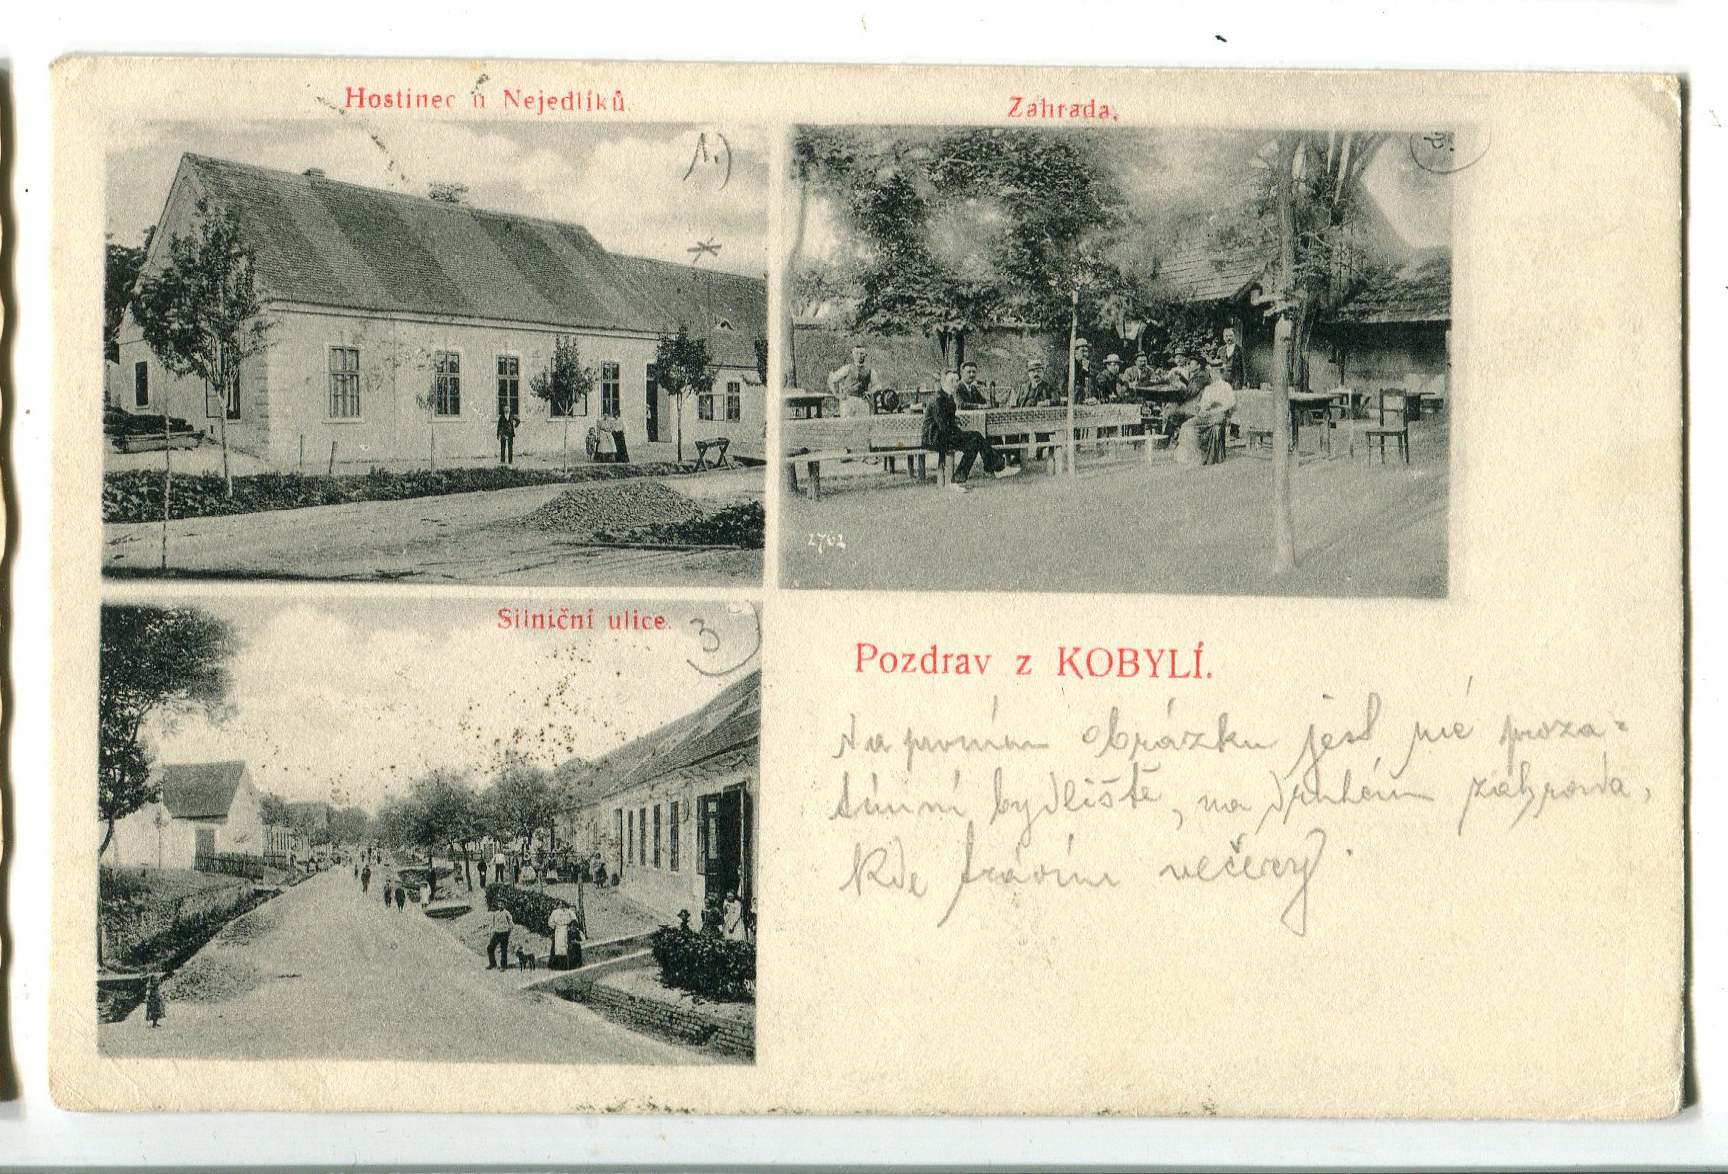 Hostinec u Nejedlíků.
Zahrada.
1.)
2.
2762
Silniční ulice.
3
Pozdrav z KOBYLÍ.
Na prvním obrázku jest mé proza-
tímní bydliště, na druhém zahrada,
kde trávím večery.